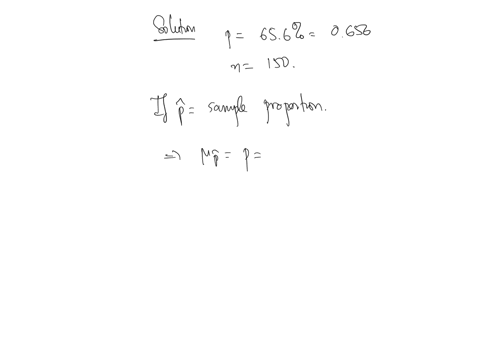 Solution p = 65.6% = 0.656
n = 150.
If p̂ = sample proportion.
⇒ μp̂ = p =